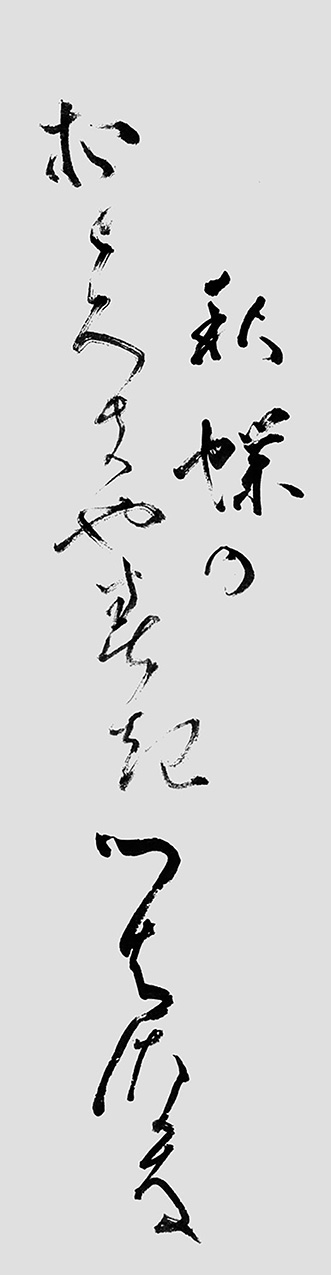 秋蝶の
おとろきやすきつはさかな